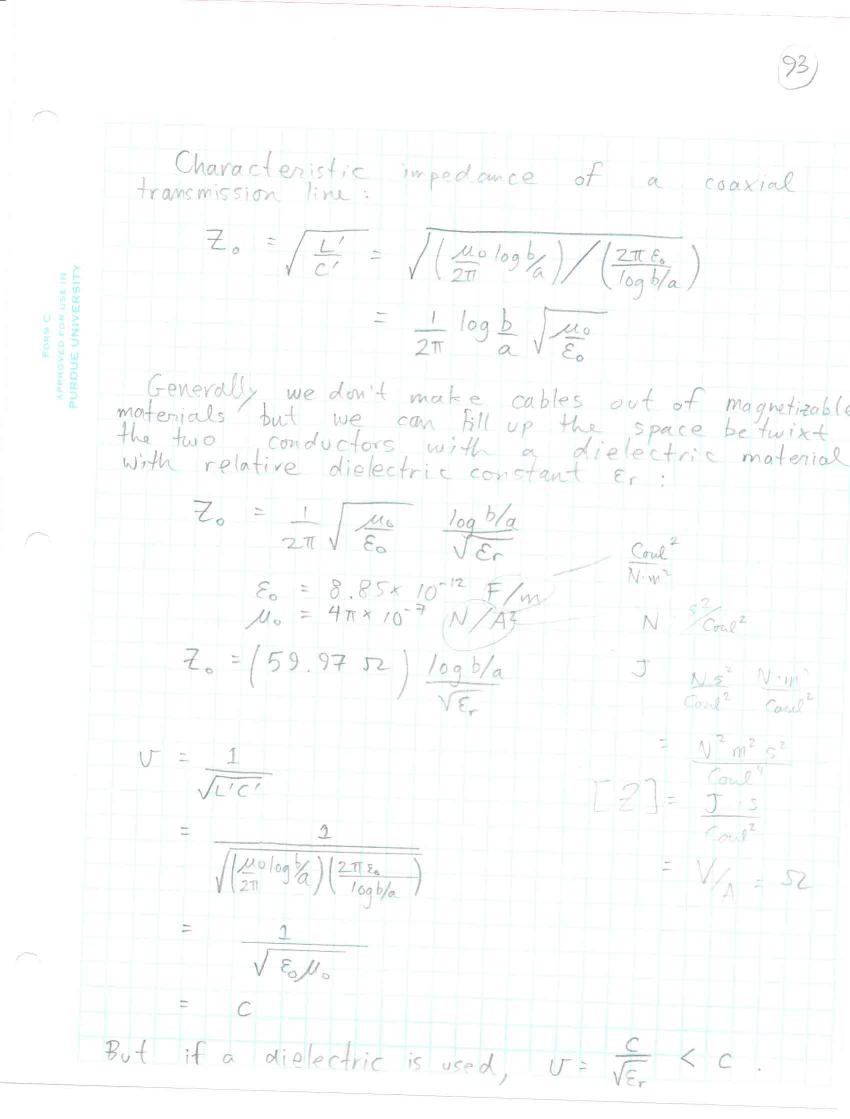 93
Characteristic impedance of a coaxial
transmission line:
Z₀ = √(L'/C') = √((μ₀/2π log b/a) / (2π ε₀/log b/a))
= 1/2π log b/a √(μ₀/ε₀)
FORM C
APPROVED FOR USE IN
PURDUE UNIVERSITY
Generally we don't make cables out of magnetizable
materials but we can fill up the space betwixt
the two conductors with a dielectric material
with relative dielectric constant εr:
Z₀ = 1/2π √(μ₀/ε₀) log b/a / √εr
ε₀ = 8.85 × 10⁻¹² F/m
Coul²/N·m²
μ₀ = 4π × 10⁻⁷ N/A²
N s²/Coul²
Z₀ = (59.97 Ω) log b/a / √εr
J N s²/Coul² N·m²/Coul²
= N² m² s²/Coul⁴
[Z] = J·s/Coul²
= V/A = Ω
v = 1/√(L'C')
= 1/√((μ₀/2π log b/a)(2π ε₀/log b/a))
= 1/√(ε₀μ₀)
= c
But if a dielectric is used, v = c/√εr < c.